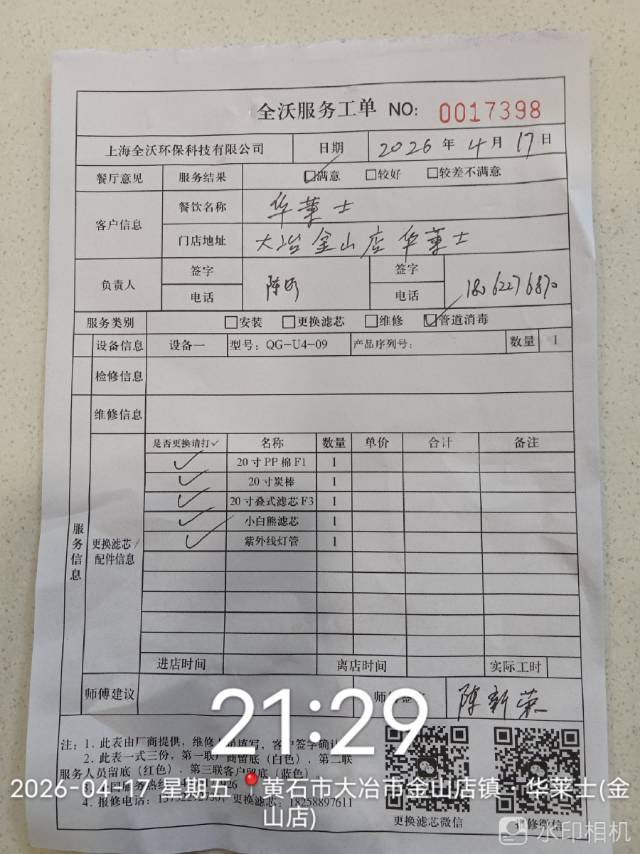 全沃服务工单 NO: 0017398
上海全沃环保科技有限公司 日期 2026年4月17日
餐厅意见 服务结果 ☑满意 □较好 □较差不满意
客户信息 餐饮名称 华莱士
门店地址 大冶金山店华莱士
负责人 签字 签字
电话 电话
服务类别 □安装 □更换滤芯 □维修 ☑管道消毒
设备信息 设备一 型号：QG-U4-09 产品序列号： 数量 1
检修信息
服务信息
维修信息
更换滤芯/配件信息
是否更换请打✓ 名称 数量 单价 合计 备注
✓ 20寸PP棉F1 1
✓ 20寸炭棒 1
✓ 20寸叠式滤芯F3 1
✓ 小白熊滤芯 1
✓ 紫外线灯管 1
进店时间 离店时间 实际工时
师傅建议 陈新荣
21:29
注：1．此表由厂商提供，维修
2．此表一式三份，第一联厂商留底（白色）、第二联
服务人员留底（红色）、第三联客户留底（蓝色）
4．报修电话： 更换滤芯：18258897611
更换滤芯微信
2026-04-17 星期五 黄石市大冶市金山店镇·华莱士(金
山店)
水印相机